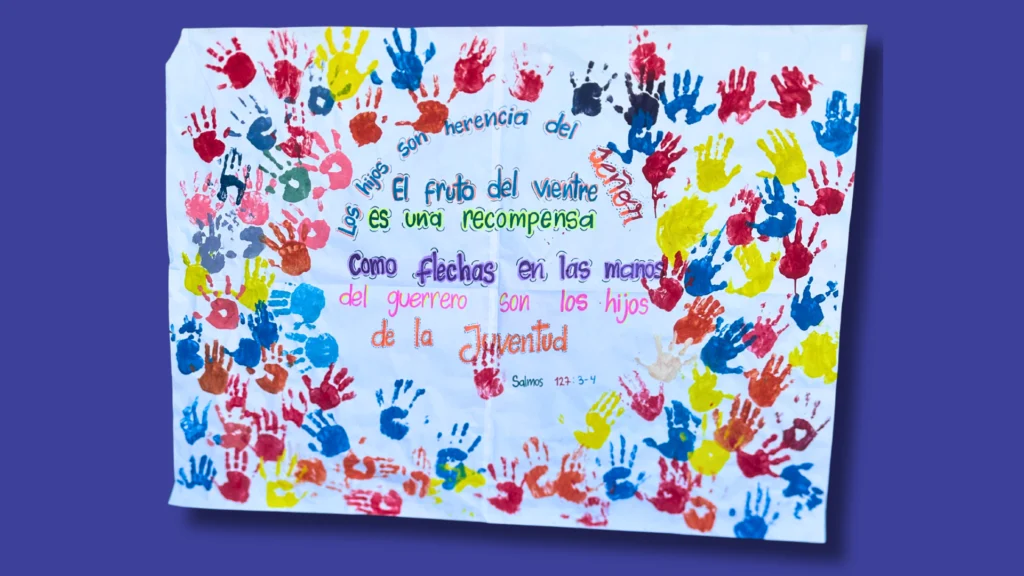 Los hijos son herencia del
señor
El fruto del vientre
es una recompensa
Como flechas en las manos
del guerrero son los hijos
de la Juventud
Salmos 127:3-4